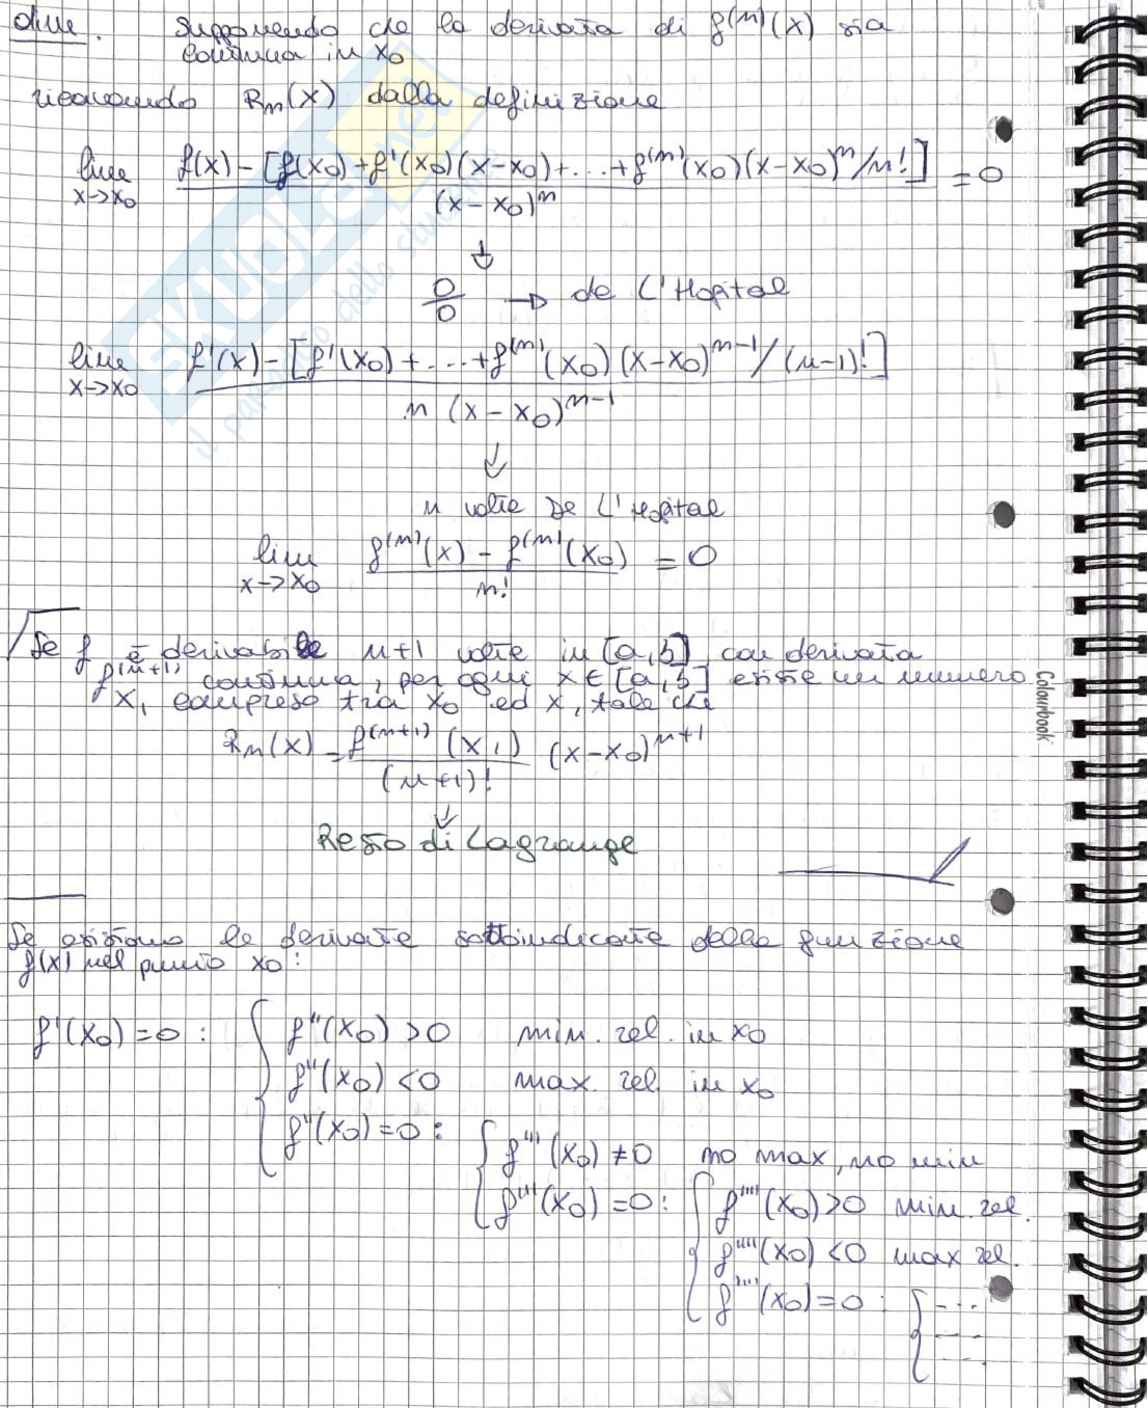 dim. Supponendo che la derivata di f⁽ⁿ⁾(x) sia
continua in x₀
ricavando Rₙ(x) dalla definizione
lim x→x₀ f(x) - [f(x₀) + f'(x₀)(x-x₀) + ... + f⁽ⁿ⁾(x₀)(x-x₀)ⁿ/n!] / (x-x₀)ⁿ = 0
↓
0/0 → de L'Hopital
lim x→x₀ f'(x) - [f'(x₀) + ... + f⁽ⁿ⁾(x₀)(x-x₀)ⁿ⁻¹/(n-1)!] / n(x-x₀)ⁿ⁻¹
↓
n volte De L'Hopital
lim x→x₀ f⁽ⁿ⁾(x) - f⁽ⁿ⁾(x₀) / n! = 0
Se f è derivabile n+1 volte in [a,b] con derivata
f⁽ⁿ⁺¹⁾ continua, per ogni x ∈ [a,b] esiste un numero
x₁ compreso tra x₀ ed x, tale che
Rₙ(x) = f⁽ⁿ⁺¹⁾(x₁) / (n+1)! (x-x₀)ⁿ⁺¹
↓
Resto di Lagrange
Se esistono le derivate sottoindicate della funzione
f(x) nel punto x₀:
f'(x₀) = 0 : { f''(x₀) > 0 min. rel. in x₀
f''(x₀) < 0 max. rel. in x₀
f''(x₀) = 0 :
{ f'''(x₀) ≠ 0 no max, no min
f'''(x₀) = 0 : { f''''(x₀) > 0 min. rel.
f''''(x₀) < 0 max rel.
f''''(x₀) = 0 : { ...
...
...
Colourbook
SKUOLA.net
il paradiso dello studente